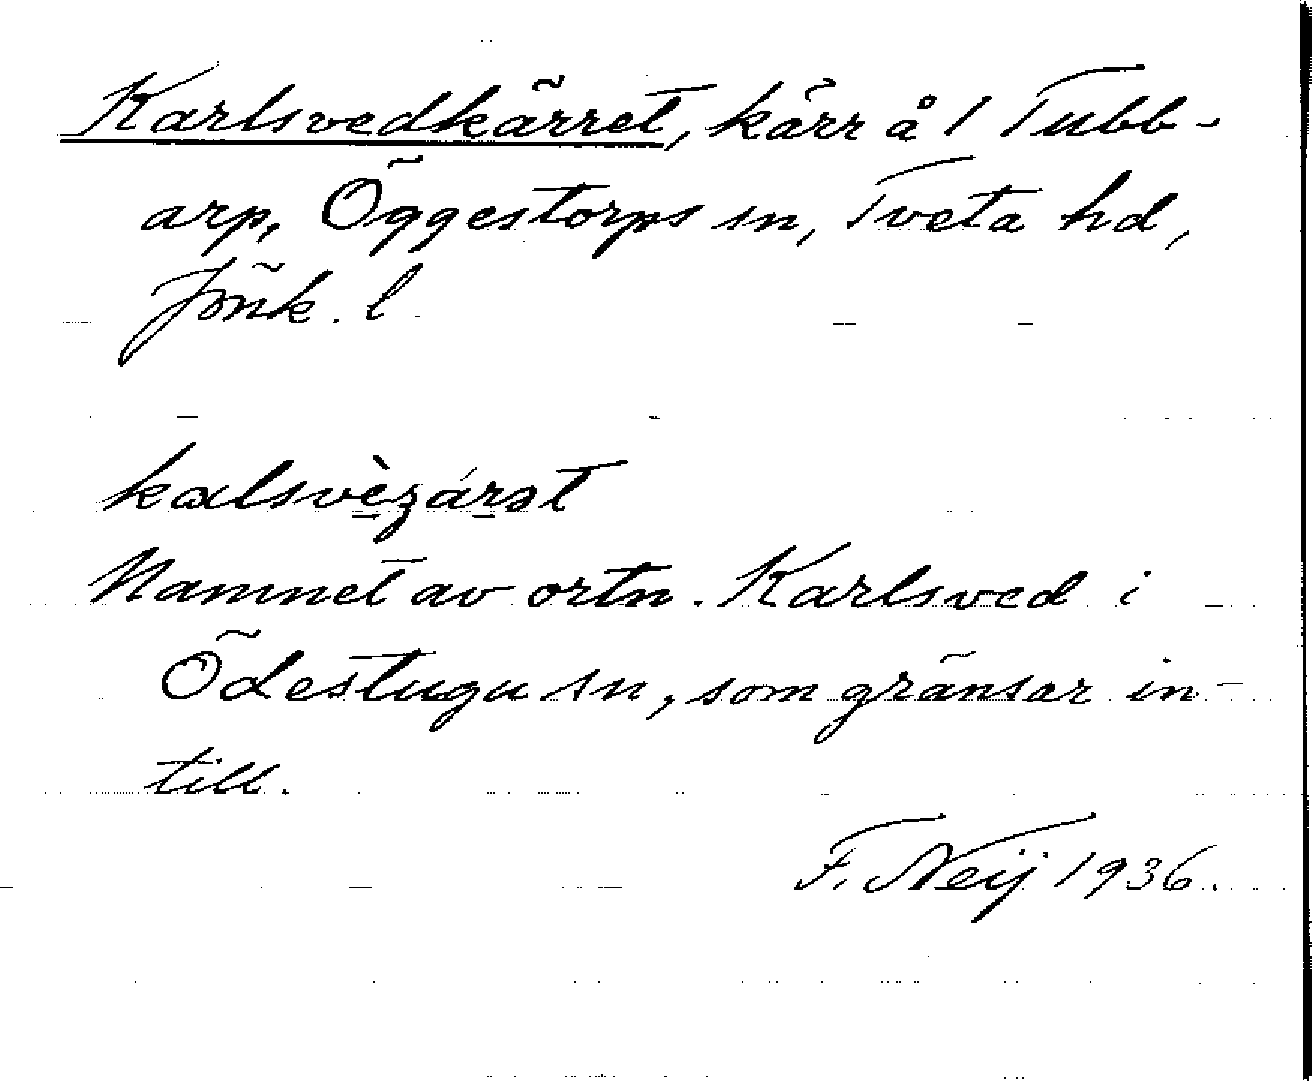 Karlsvedkärret, kärr å 1 Tubb-
arp, Öggestorps sn, Tveta hd,
Jönk. l.
kalsvèzárət
Namnet av ortn. Karlsved i
Ödestugu sn, som gränsar in-
till.
F. Neij 1936.